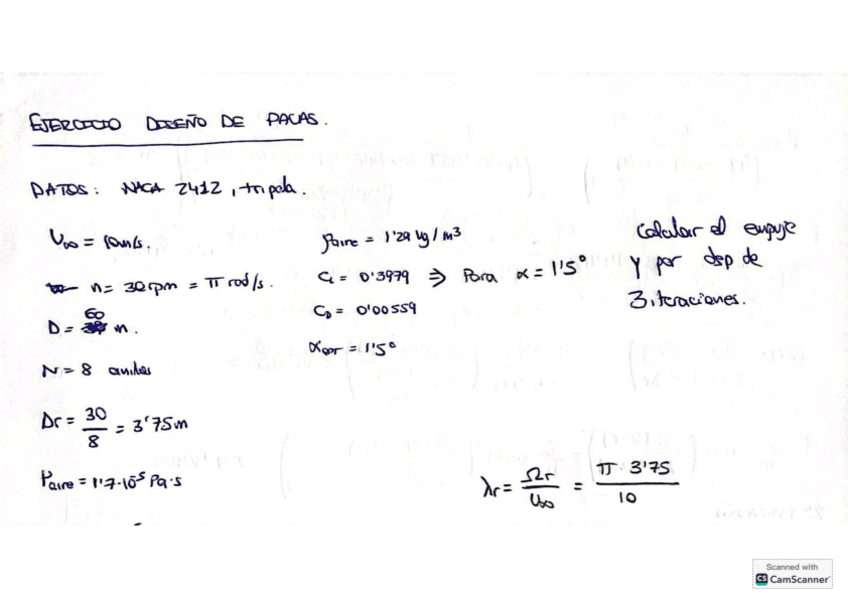 EJERCICIO DISEÑO DE PALAS.
DATOS: NACA 2412, tripala.
U∞ = 10m/s.
n = 30 rpm = π rad/s.
D = 60 m.
N = 8 anillos
Δr = 30/8 = 3'75m
μaire = 1'7·10⁻⁵ Pa·s
ρaire = 1'29 kg/m³
CL = 0'3979 ⇒ Para α = 1'5°
CD = 0'00559
αopt = 1'5°
Calcular el empuje
y par dsp de
3 iteraciones.
λr = Ωr/U∞ = π · 3'75/10
Scanned with
CS CamScanner